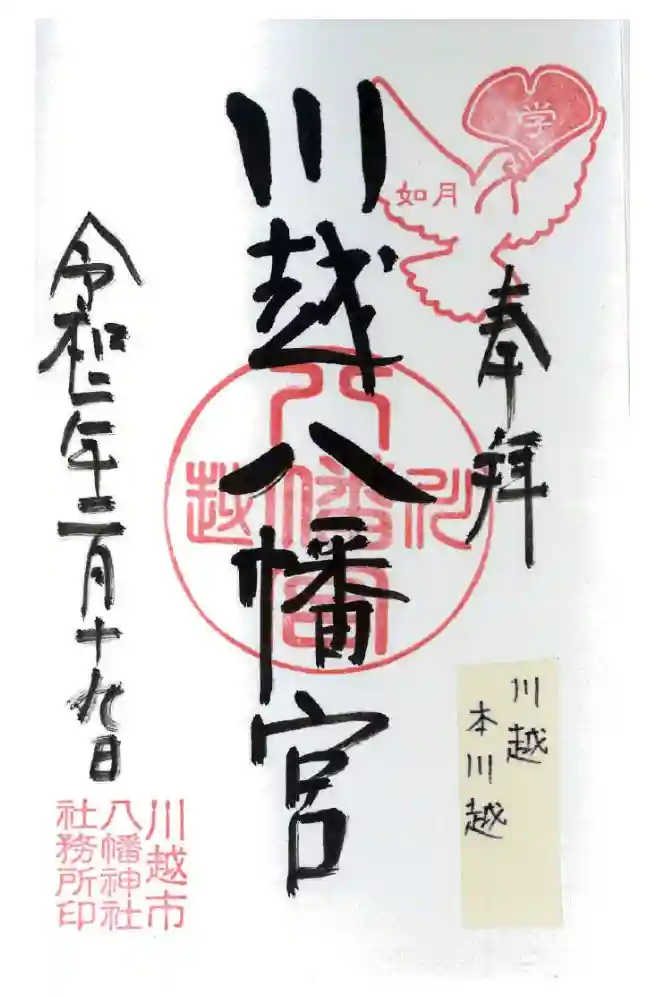 学
如月
奉拝
川越
本川越
川越八幡宮
川越八幡宮
令和二年二月十九日
川越市
八幡神社
社務所印